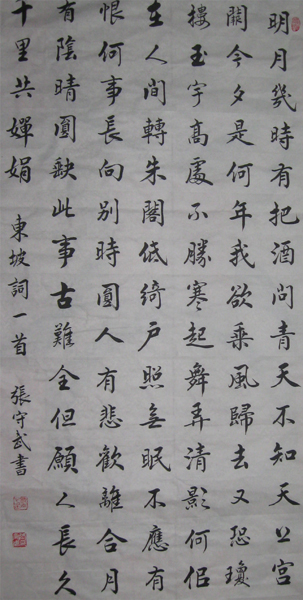 明月幾時有把酒問青天不知天上宮
闕今夕是何年我欲乘風歸去又恐瓊
樓玉宇高處不勝寒起舞弄清影何佀
在人間轉朱閣低綺户照無眠不應有
恨何事長向別時圓人有悲歡離合月
有陰晴圓缺此事古難全但願人長久
千里共嬋娟 東坡詞一首 張守武書